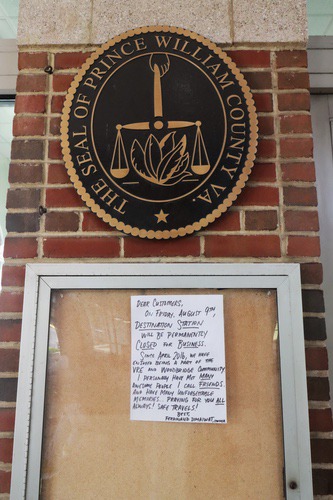 THE SEAL OF PRINCE WILLIAM COUNTY VA.
DEAR CUSTOMERS,
ON FRIDAY, AUGUST 9TH,
DESTINATION STATION
WILL BE PERMANENTLY
CLOSED FOR BUSINESS.
SINCE APRIL 2016, WE HAVE
ENJOYED BEING A PART OF THE
VRE AND WOODBRIDGE COMMUNITY.
I PERSONALLY HAVE MET MANY
AWESOME PEOPLE I CALL FRIENDS
AND HAVE MANY UNFORGETTABLE
MEMORIES... PRAYING FOR YOU ALL
ALWAYS! SAFE TRAVELS!
BEST,
FERDINAND